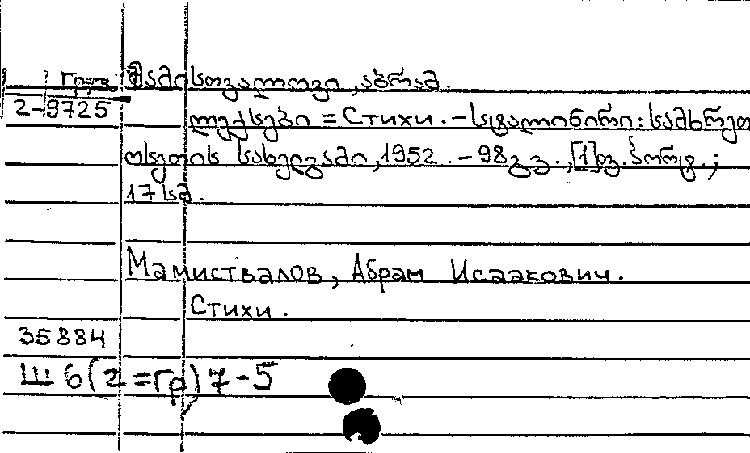 Груз მამისთვალოვი, აბრამ.
2-9725
ლექსები = Стихи. – სტალინირი: სამხრეთ
ოსეთის სახელგამი, 1952. – 98 გვ., [1] ფ. პორტ.;
17 სმ.
Мамиствалов, Абрам Исаакович.
Стихи.
35884
Ш 6(2=Гр)7-5